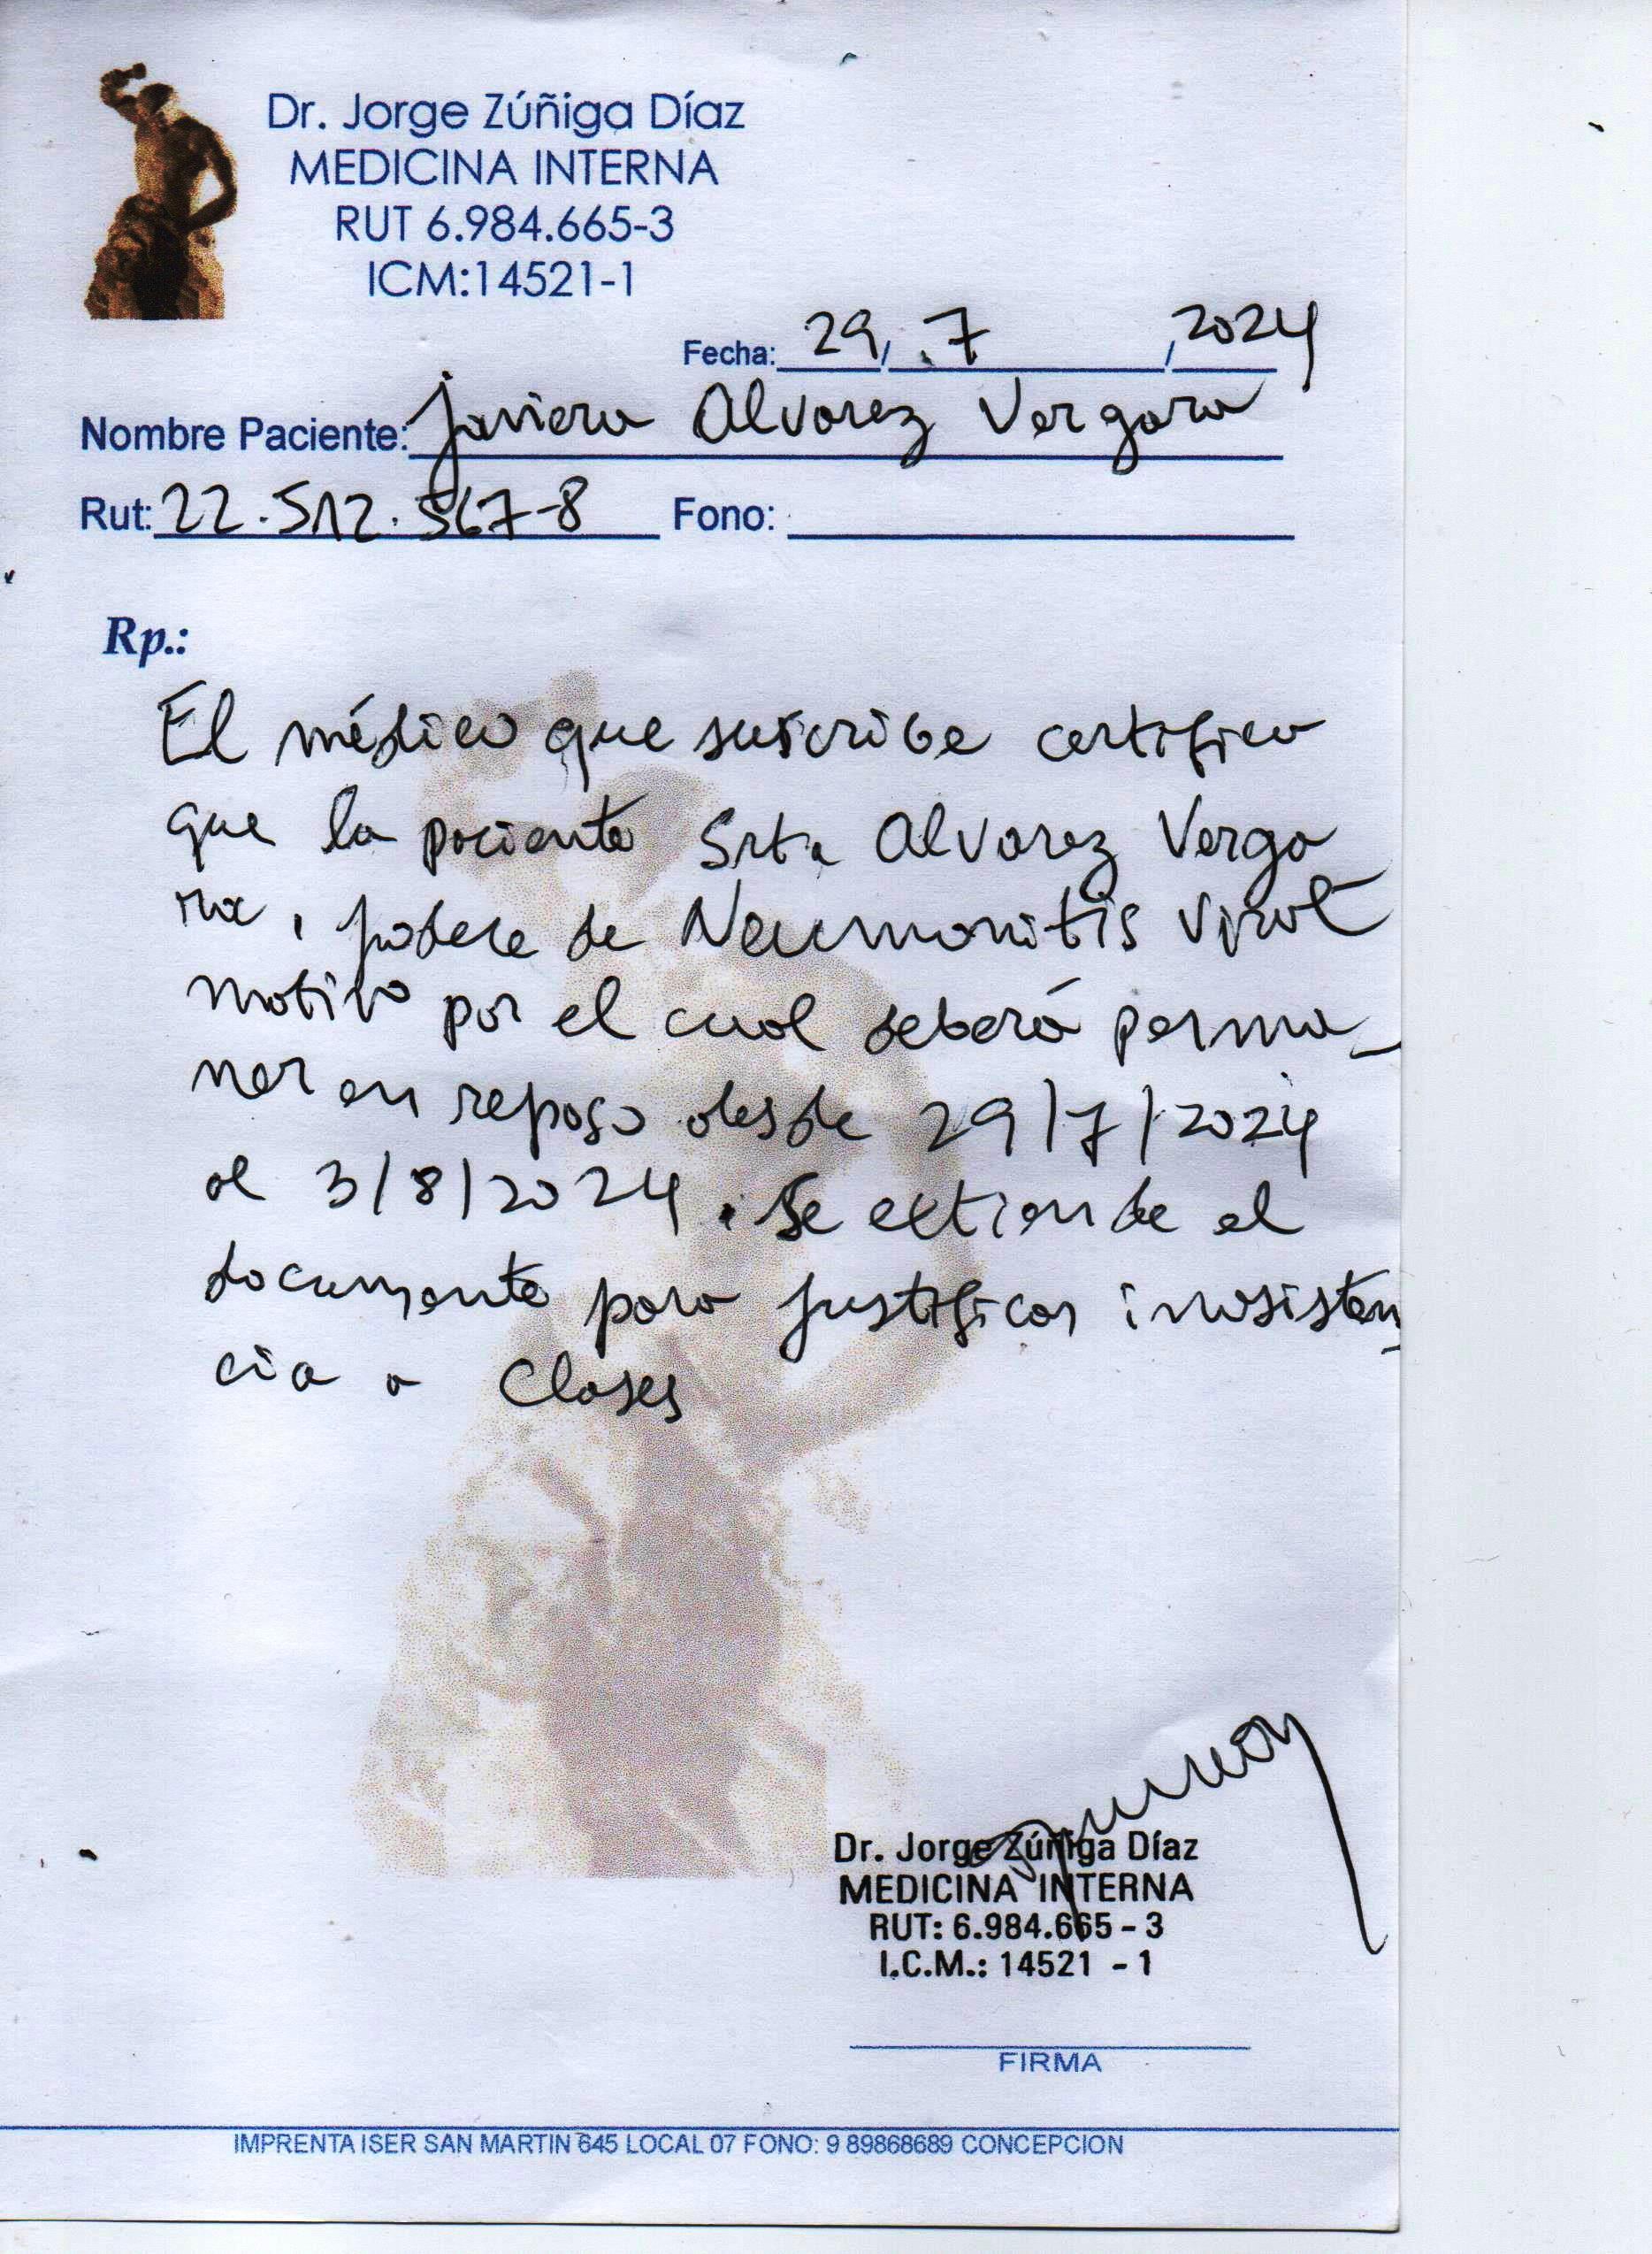 Dr. Jorge Zúñiga Díaz
MEDICINA INTERNA
RUT 6.984.665-3
ICM:14521-1
Fecha: 29/.7/2024
Nombre Paciente: Javiera Alvarez Vergara
Rut: 22.512.567-8 Fono:
Rp.:
El médico que suscribe certifica
que la paciente Srta Alvarez Verga
ra, padece de Neumonitis Viral
motivo por el cual deberá perma_
ner en reposo desde 29/7/2024
al 3/8/2024. Se extiende el
documento para justificar inasisten_
cia a Clases
Dr. Jorge Zúñiga Díaz
MEDICINA INTERNA
RUT: 6.984.665 - 3
I.C.M.: 14521 - 1
FIRMA
IMPRENTA ISER SAN MARTIN 645 LOCAL 07 FONO: 9 89868689 CONCEPCION